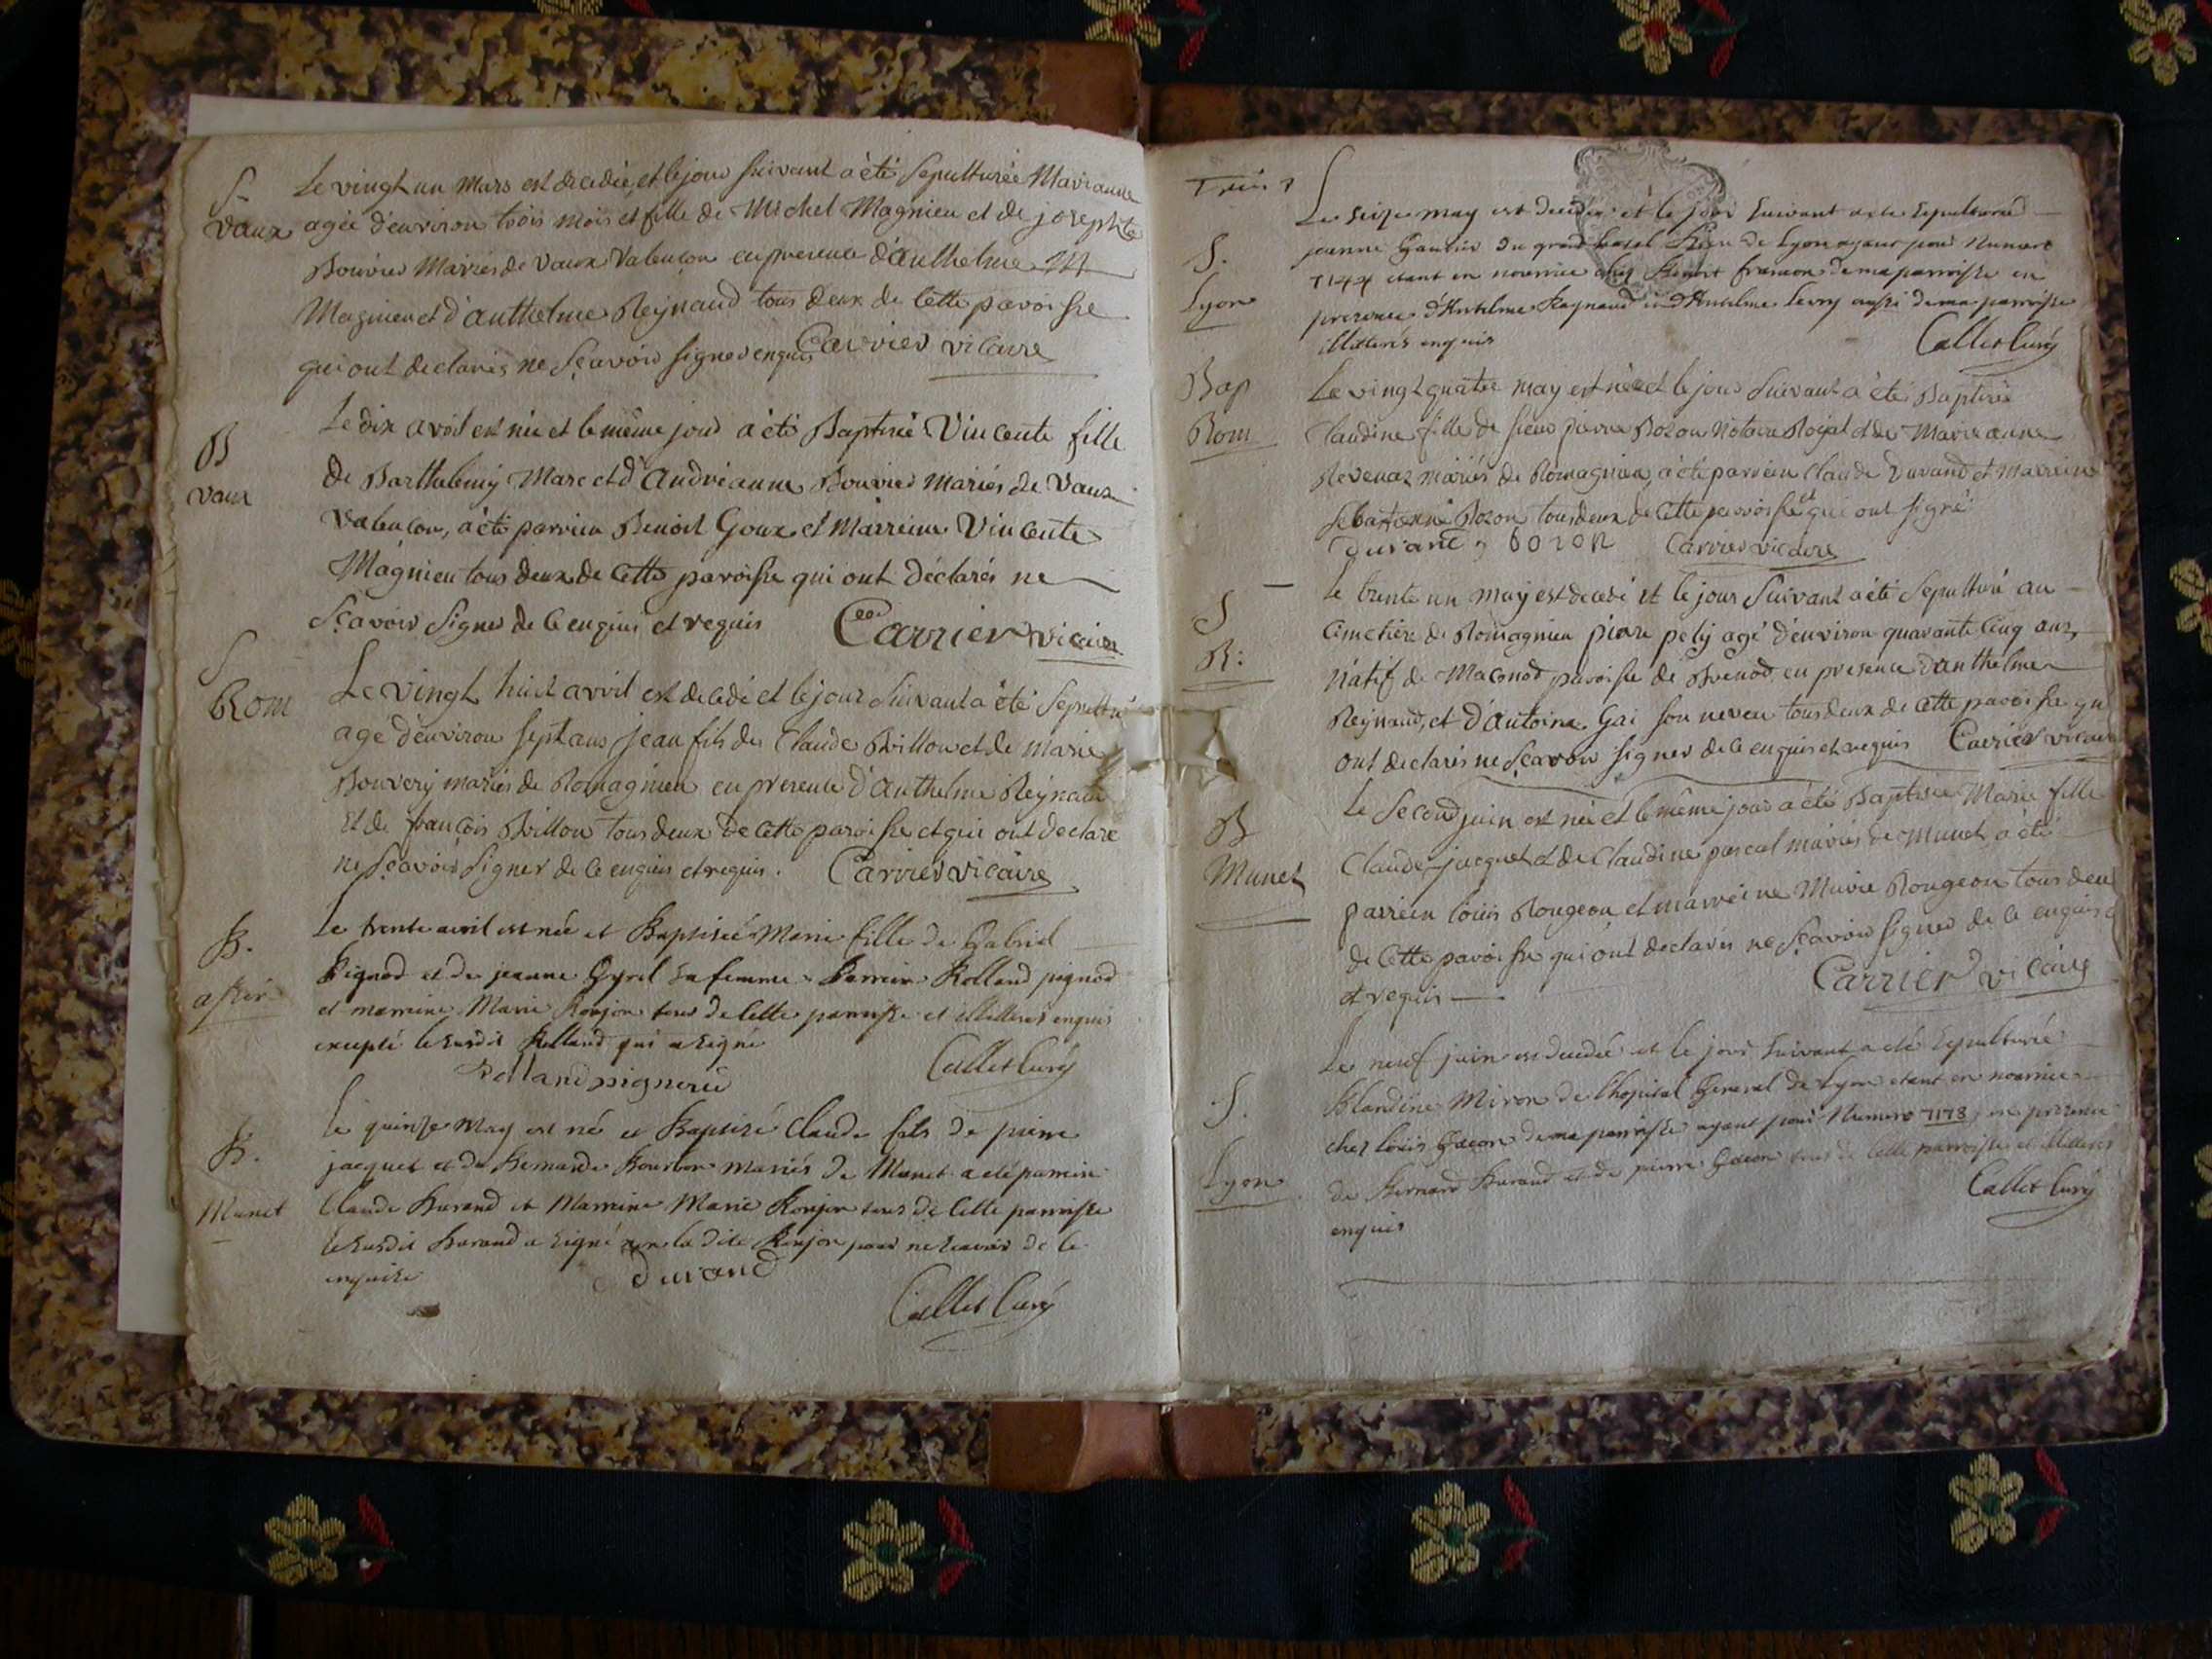 S.
Vaux
Le vingt un Mars est decedée, et le jour suivant a èté sepulturée Marianne
agée d'environ trois mois et fille de Michel Magnieu et de josephte
Bouvier Mariés de Vaux Valençon en presence d'authelme M
Magnieu et d'authelme Reynaud tous deux de Cette paroisse
qui ont declarés ne Sçavoir signer enquis Carrier vicaire
B
vaux
Le dix avril est née et le même jour a èté Baptisée Vincente fille
de Barthelemy Marc et d'Andréanne Bouvier mariés de Vaux
Valençon, a èté parrien Benoit Goux et Marreine Vincente
Magnieu tous deux de Cette paroisse qui ont déclarés ne
Sçavoir Signer de Ce enquis et requis Carrier vicaire
S
Rom
Le vingt huit avril est decedé et le jour Suivant a èté Sepulturé
agé d'environ sept ans Jean fils de Claude Billon et de Marie
Bouvery mariés de Romagnieu en presence d'Authelme Reynaud
Et de françois Billon tous deux de Cette paroisse et qui ont declaré
ne Sçavoir Signer de Ce enquis et requis. Carrier vicaire
B.
Le trente avril est née et Baptisée Marie fille de Gabriel
Pignod et de jeanne Gyrel sa femme Parrein Rolland pignod
et marreine Marie Ronjon tous de Cette parroisse et illitterés enquis
excepté le Susdit Rolland qui a Signé
Rolland pignod Callet Curé
B.
Munet
Le quinze May est né et Baptisé Claude fils de pierre
jacquet et de Bernarde Bourbon mariés de Munet a eté parrein
Claude Durand et Marreine Marie Ronjon tous de Cette parroisse
le Susdit Durand a Signé non la dite Ronjon pour ne Scavoir de Ce
enquise Durand
Callet Curé
S.
Lyon
Le seize may est decedée et le jour suivant a ete sepulturée
jeanne Gautier du grand hotel Dieu de Lyon ayant pour Numero
7144 etant en nourrice chez Benoit francon de ma parroisse en
presence d'Antelme Raynaud et d'Antelme Levry aussi de ma parroisse
illiterés enquis Callet Curé
Bap
Rom
Le vingt quatre may est née et le jour Suivant a été Baptisée
Claudine fille de sieur pierre Bozon Notaire Royal et de Marie anne
Revenaz mariés de Romagnieu, a été parrien Claude Durand et Marreine
Sebastienne Bozon tous deux de Cette paroisse et qui ont signé
Durand, bozon Carrier vicaire
S
R:
Le trente un may est decedé et le jour Suivant a été Sepulturé au
Cimetière de Romagnieu piere pely agé d'environ quarante Cinq ans,
natif de Maconod paroisse de Brenod en presence d'anthelme
Reynaud, et d'Antoine Gai son neveu tous deux de Cette paroisse qui
ont declarés ne Sçavoir signer de Ce enquis et requis Carrier vicaire
B
Munet
Le Second juin est née et le même jour a été Baptisée Marie fille
Claude jacquet et de Claudine pascal mariés de Munet a été
parrien Loüis Rongeon et marreine Marie Rongeon tous deux
de Cette paroisse qui ont declarés ne Sçavoir Signer de Ce enquis
et requis Carrier vicaire
S.
Lyon
Le neuf juin est decedée et le jour suivant a eté sepulturée
Blandine Miron de l'hopital General de Lyon etant en nourrice
chez Louis Gacon de ma parroisse ayant pour Numero 7178, en presence
de Bernard Durand et de pierre Gacon tous de Cette parroisse et illiterés
enquis Callet Curé